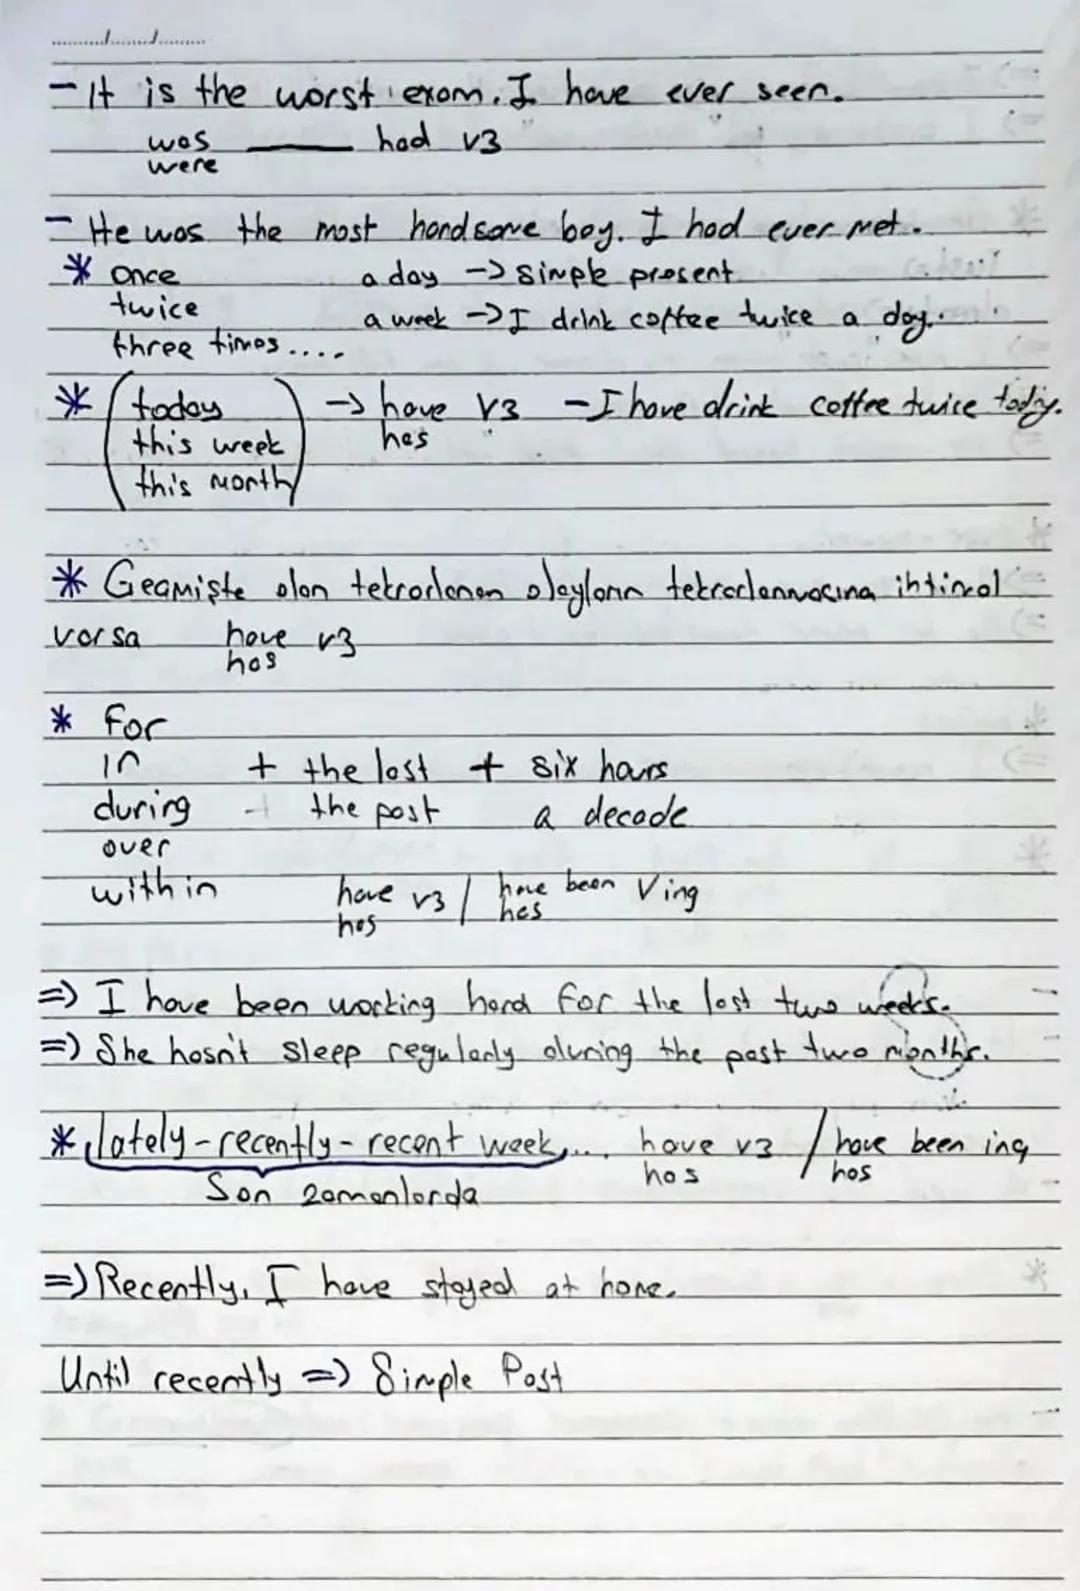 - It is the worst exam. I have ever seen.
was ___ had v3
were
- He was the most handsome boy. I had ever met.
* once a day -> simple present
twice a week -> I drink coffee twice a day.
three times....
* today -> have V3 - I have drink coffee twice today.
this week has
this month
* Geçmişte olan tekrarlanan olayların tekrarlanmasına ihtimal
varsa have v3
has
* For
in + the last + six hours
during + the past a decade
over
within have v3 / have been Ving
has has
=> I have been working hard for the last two weeks.
=> She hasn't sleep regularly during the past two months.
* lately - recently - recent week,... have v3 / have been ing
Son zamanlarda has has
=> Recently, I have stayed at home.
Until recently => Simple Past